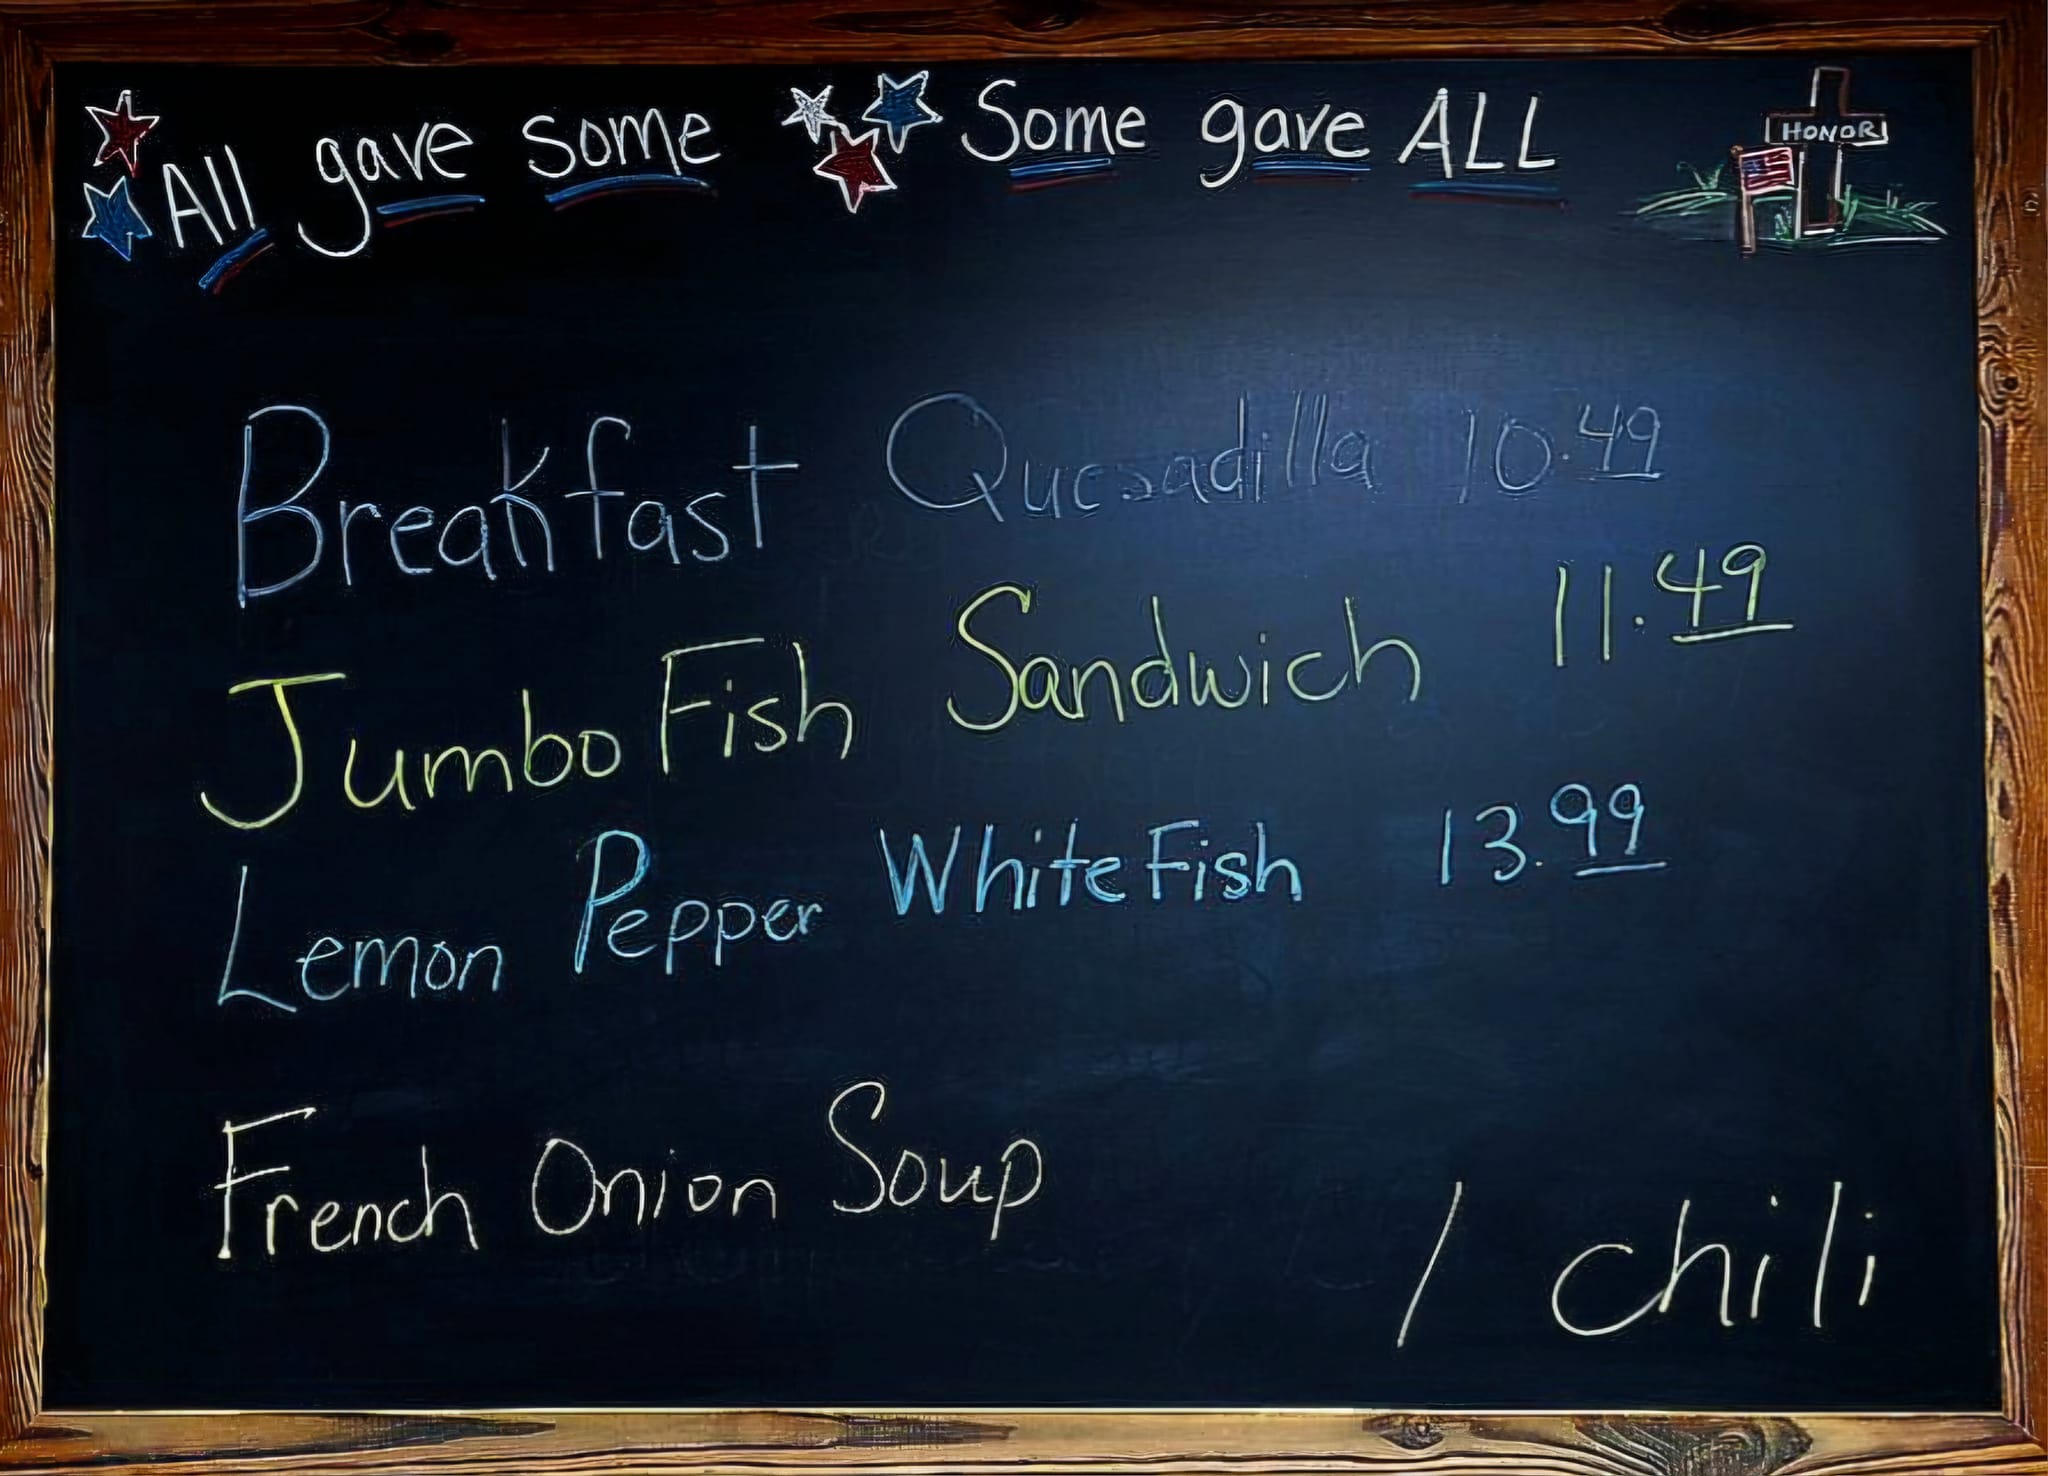 All gave some Some gave ALL
HONOR
Breakfast Quesadilla 10.49
Jumbo Fish Sandwich 11.49
Lemon Pepper White Fish 13.99
French Onion Soup / chili